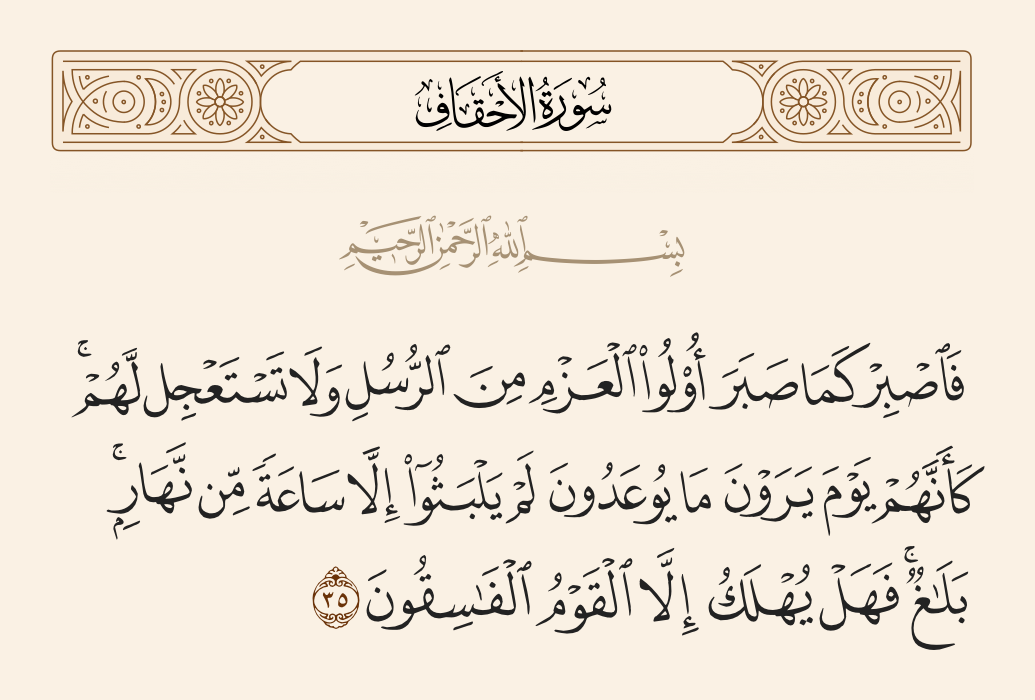 سُورَةُ الأَحْقَافِ
بِسْمِ ٱللَّهِ ٱلرَّحْمَٰنِ ٱلرَّحِيمِ
فَٱصْبِرْ كَمَا صَبَرَ أُو۟لُوا۟ ٱلْعَزْمِ مِنَ ٱلرُّسُلِ وَلَا تَسْتَعْجِل لَّهُمْ ۚ
كَأَنَّهُمْ يَوْمَ يَرَوْنَ مَا يُوعَدُونَ لَمْ يَلْبَثُوٓا۟ إِلَّا سَاعَةً مِّن نَّهَارٍۭ ۚ
بَلَٰغٌ ۚ فَهَلْ يُهْلَكُ إِلَّا ٱلْقَوْمُ ٱلْفَٰسِقُونَ ٣٥